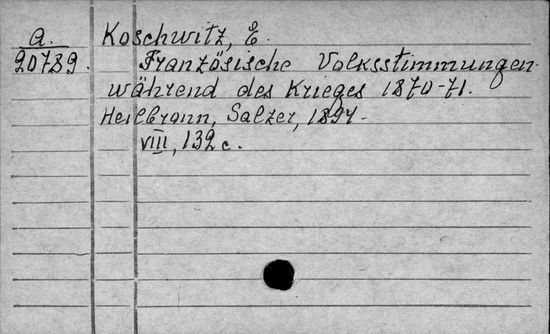 A.
20739.
Koschwitz, E.
Französische Volksstimmungen
während des Krieges 1870-71.
Heilbronn, Salzer, 1894.
VIII, 132 c.